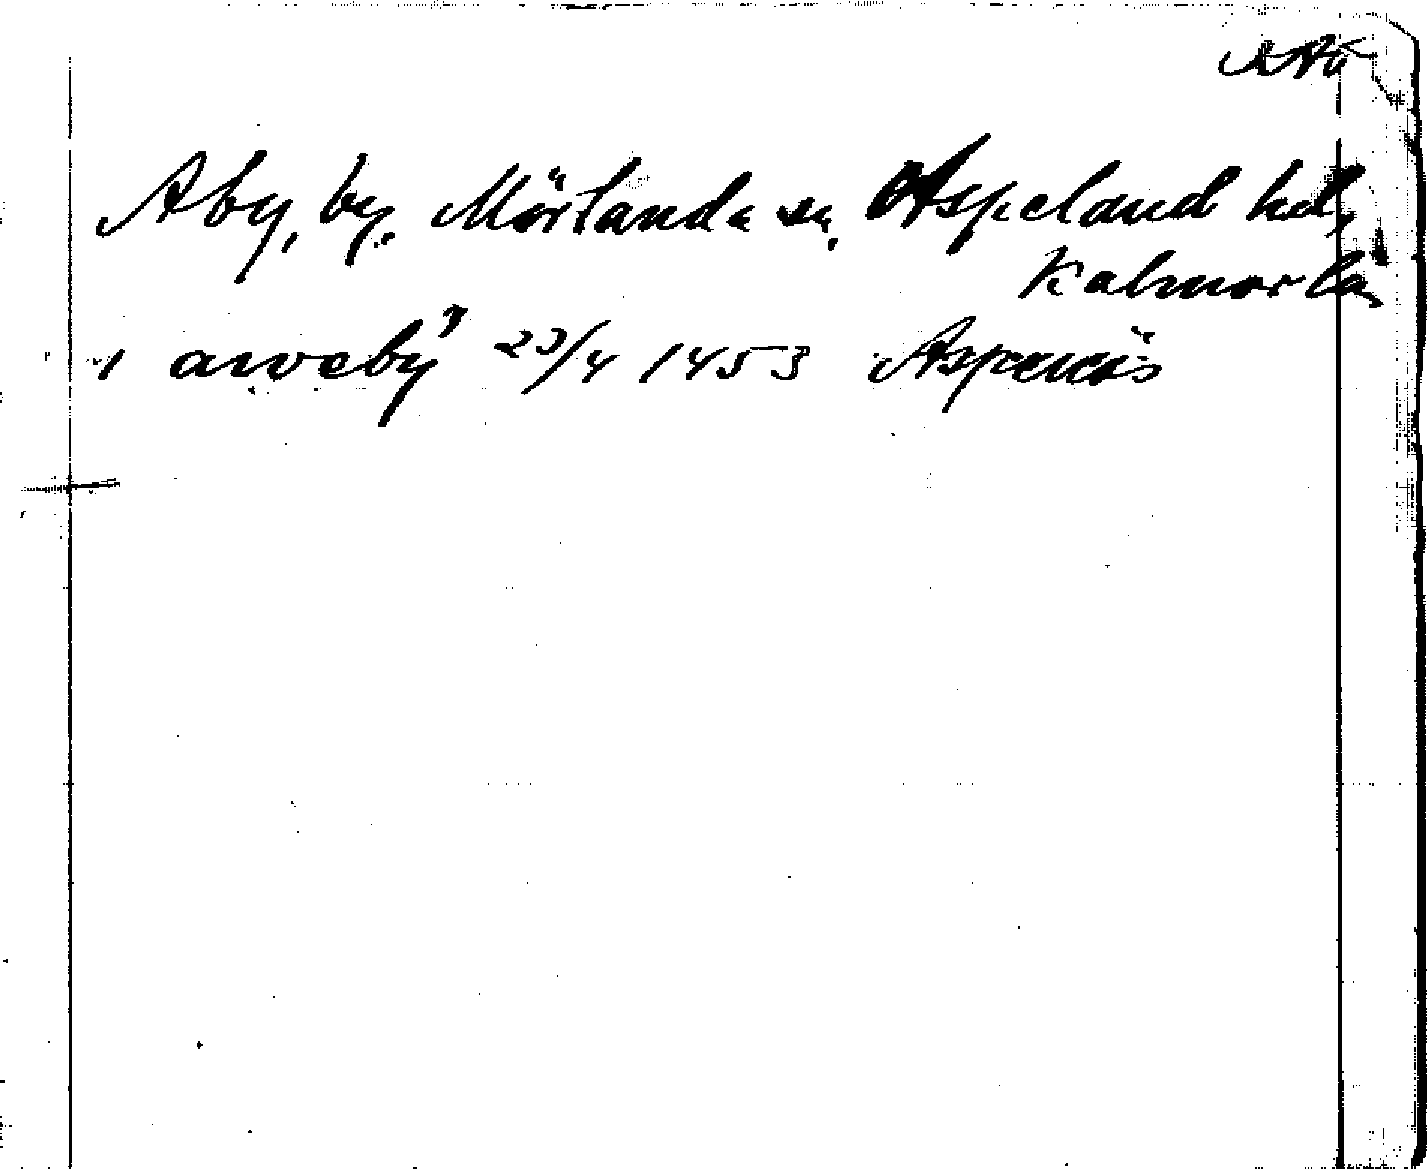 Aby, by. Mörlunda sn, Aspeland hd,
Kalmar lä
i aroeby 23/4 1453 Aspenäs